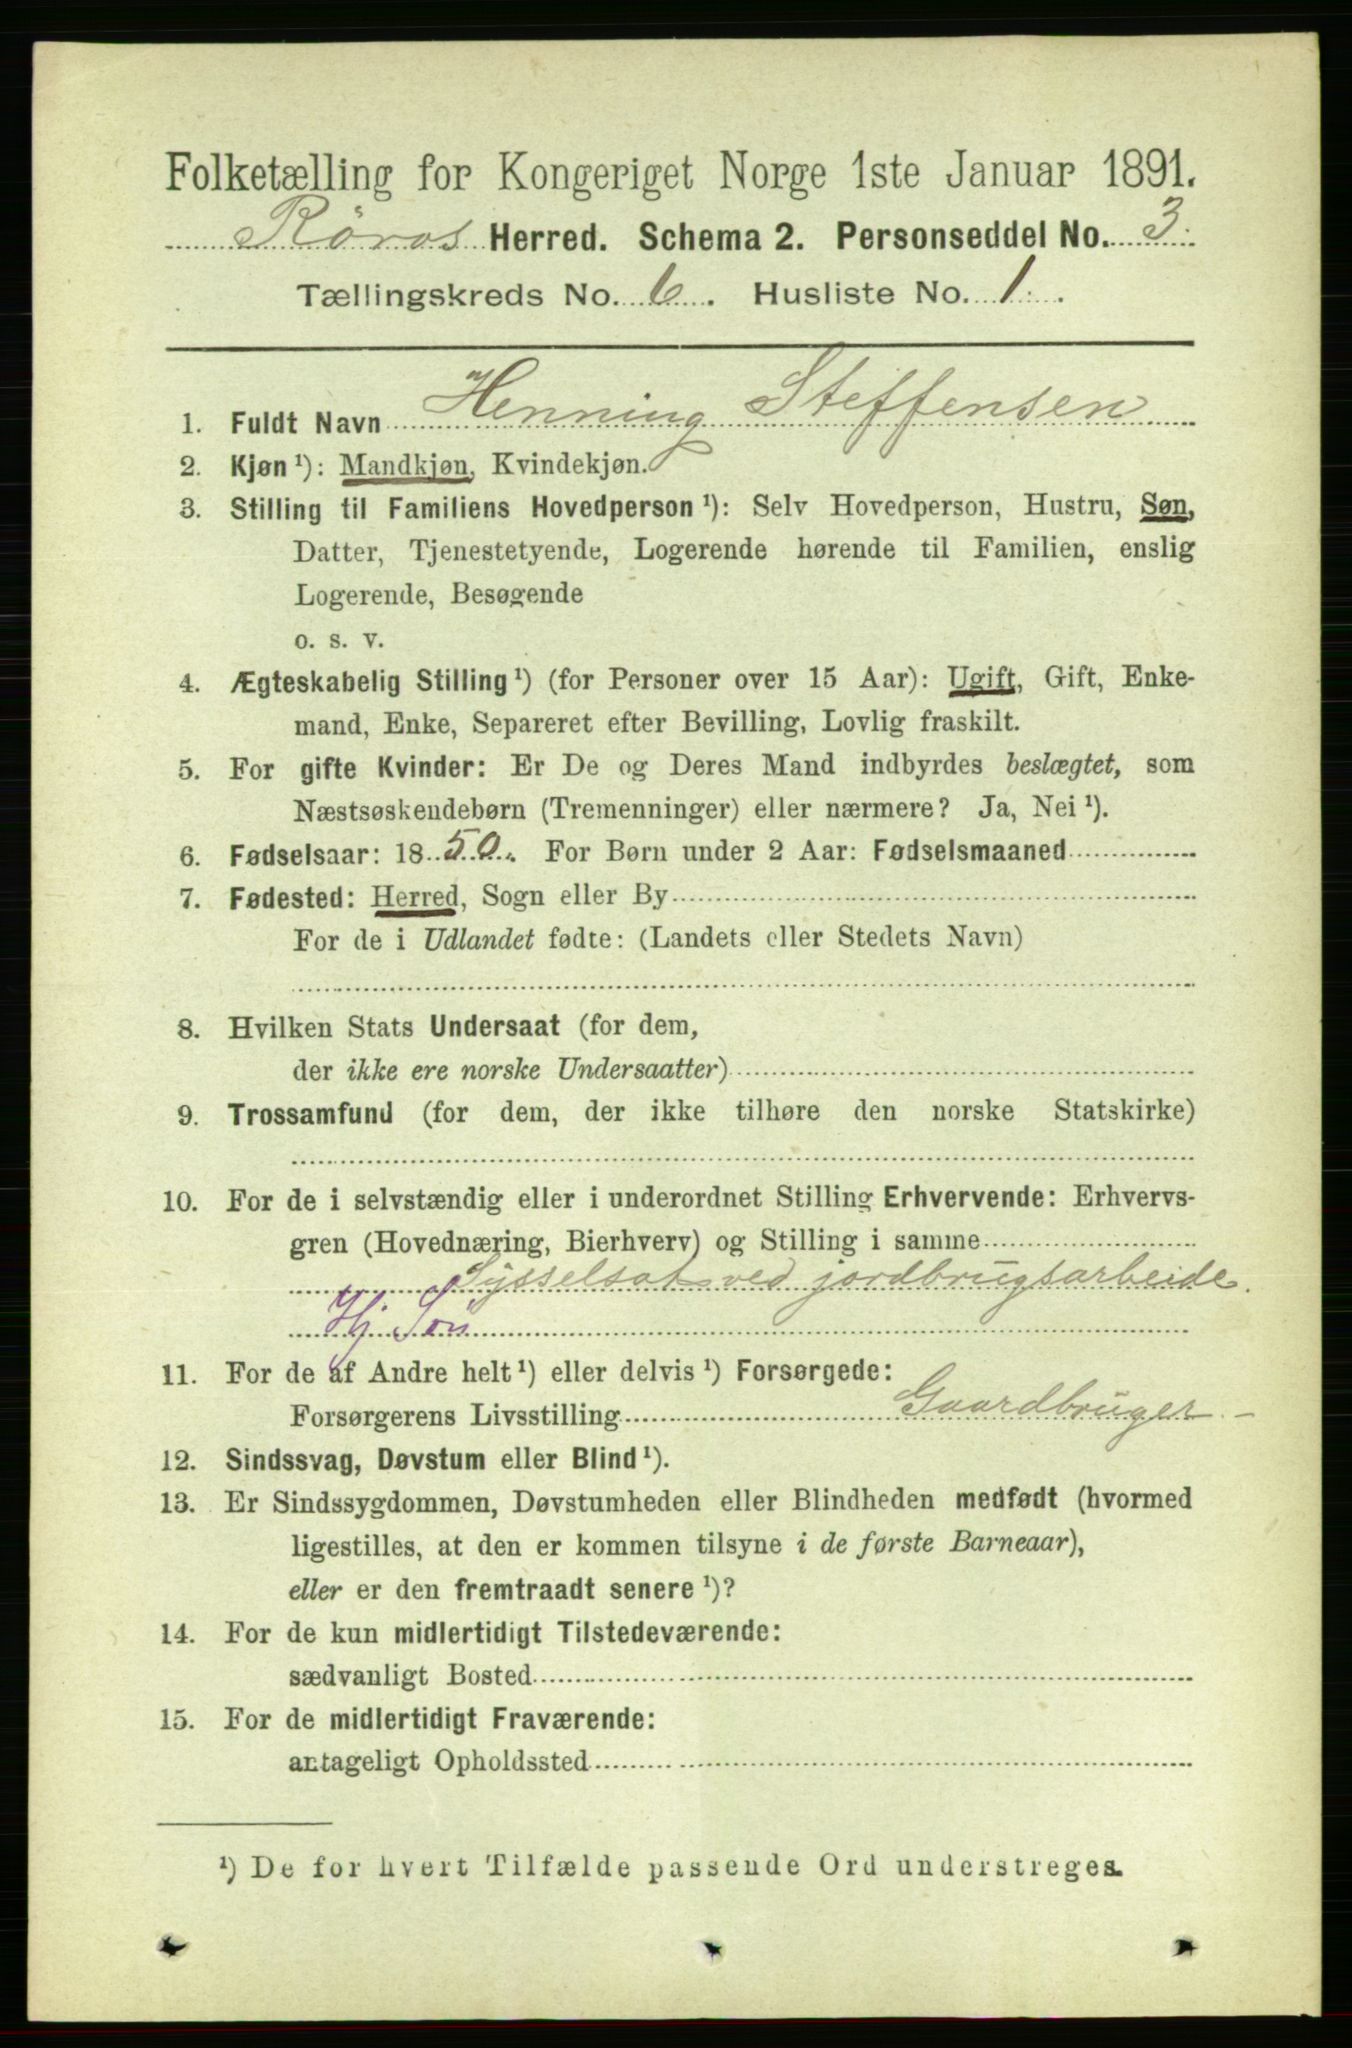 Folketælling for Kongeriget Norge 1ste Januar 1891.
Röros Herred. Schema 2. Personseddel No. 3.
Tællingskreds No. 6. Husliste No. 1.
1. Fuldt Navn Henning Steffensen
2. Kjøn ¹): Mandkjøn, Kvindekjøn.
3. Stilling til Familiens Hovedperson ¹): Selv Hovedperson, Hustru, Søn,
Datter, Tjenestetyende, Logerende hørende til Familien, enslig
Logerende, Besøgende
o. s. v.
4. Ægteskabelig Stilling ¹) (for Personer over 15 Aar): Ugift, Gift, Enke-
mand, Enke, Separeret efter Bevilling, Lovlig fraskilt.
5. For gifte Kvinder: Er De og Deres Mand indbyrdes beslægtet, som
Næstsøskendebørn (Tremenninger) eller nærmere? Ja, Nei ¹).
6. Fødselsaar: 1850. For Børn under 2 Aar: Fødselsmaaned
7. Fødested: Herred, Sogn eller By
For de i Udlandet fødte: (Landets eller Stedets Navn)
8. Hvilken Stats Undersaat (for dem,
der ikke ere norske Undersaatter)
9. Trossamfund (for dem, der ikke tilhøre den norske Statskirke)
10. For de i selvstændig eller i underordnet Stilling Erhvervende: Erhvervs-
gren (Hovednæring, Bierhverv) og Stilling i samme
Sysselsat ved jordbrugsarbeide.
Hj Søn
11. For de af Andre helt ¹) eller delvis ¹) Forsørgede:
Forsørgerens Livsstilling Gaardbruger -
12. Sindssvag, Døvstum eller Blind ¹).
13. Er Sindssygdommen, Døvstumheden eller Blindheden medfødt (hvormed
ligestilles, at den er kommen tilsyne i de første Barneaar),
eller er den fremtraadt senere ¹)?
14. For de kun midlertidigt Tilstedeværende:
sædvanligt Bosted
15. For de midlertidigt Fraværende:
antageligt Opholdssted
¹) De for hvert Tilfælde passende Ord understreges.